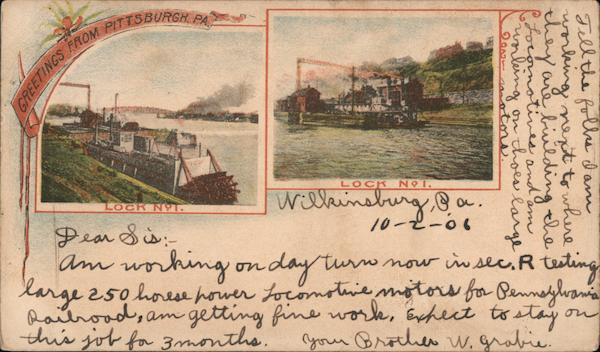 GREETINGS FROM PITTSBURGH, PA.
LOCK No 1.
LOCK No 1.
Wilkinsburg, Pa.
10-2-06
Dear Sis:-
Am working on day turn now in sec. R testing
large 250 horese power Locomotive motors for Pennsylvania
Railroad, am getting fine work, Expect to stay on
this job for 3 months. Your Brother W.
Tell the folks I am
working next to where
they are building the
Locomotives and am
working on thoes large
motors.